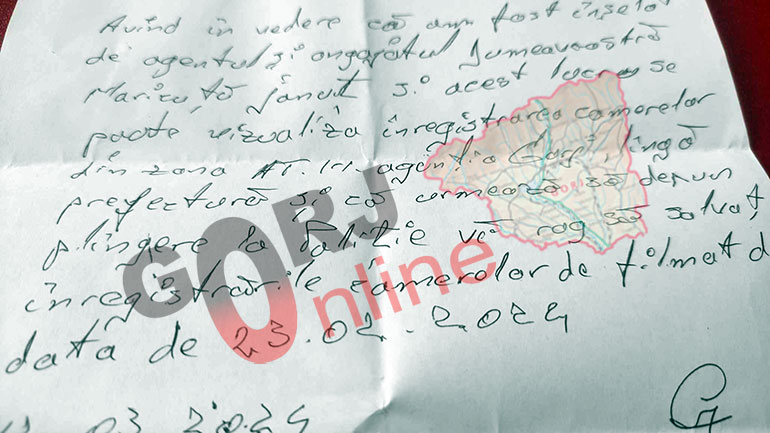 Avînd în vedere că am fost înșelat
de agentul și angajatul dumeavoastră
Măricuță Ionuț și acest lucru se
poate vizualiza înregistrarea camerelor
din zona agenția Gorj, lîngă
prefectură și că urmează să depun
plîngere la Poliție vă rog să salvați
înregistrările camerelor de filmat d
data de 23.02.2024
03 2024
GORJ
Online